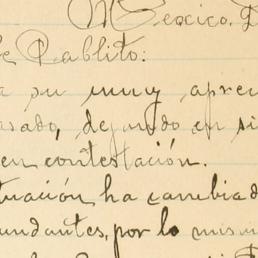 México, D
Pablito:
a su muy apre
asado, dejando en si
en contestación.
tuación ha cambiad
undantes, por lo mism